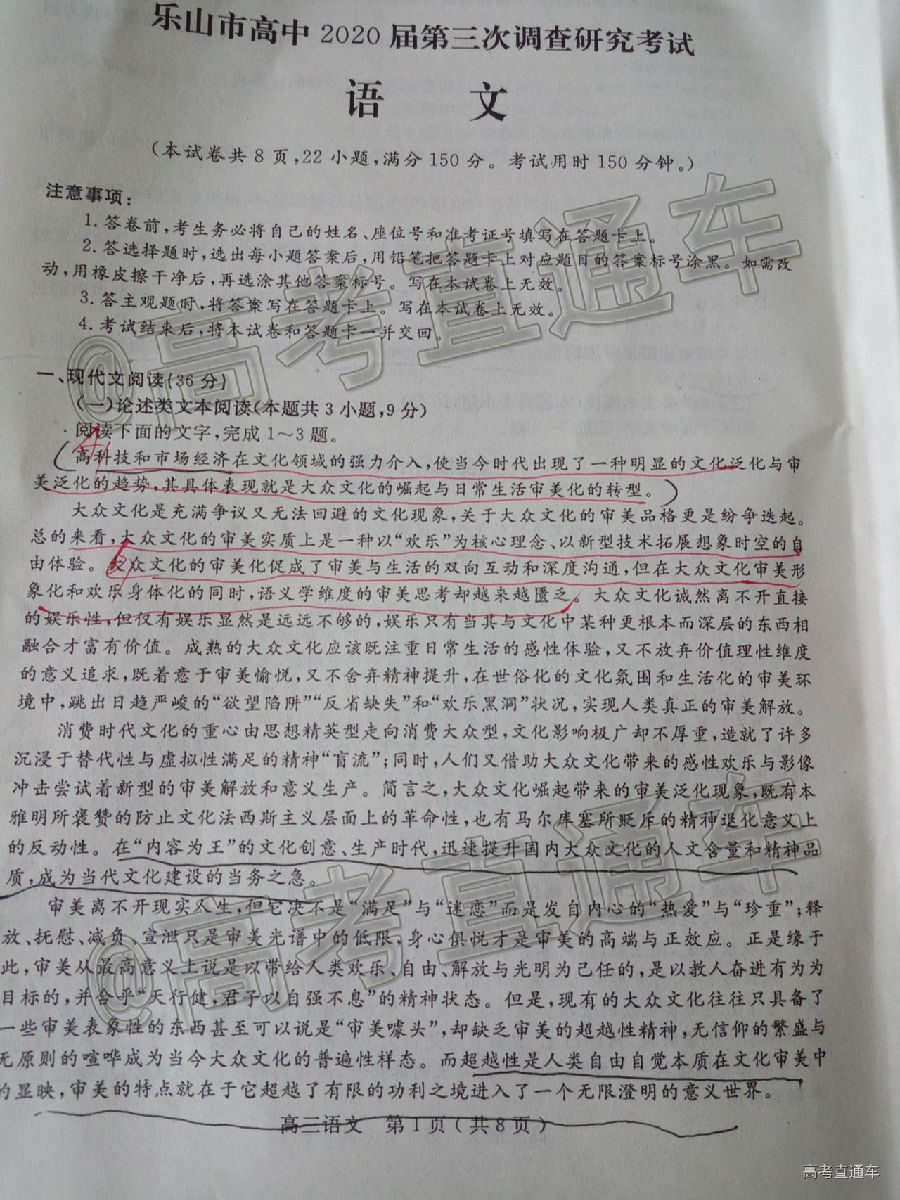 乐山市高中2020届第三次调查研究考试
语 文
(本试卷共8页,22小题,满分150分。考试用时150分钟。)
注意事项:
1.答卷前,考生务必将自己的姓名、座位号和准考证号填写在答题卡上。
2.答选择题时,选出每小题答案后,用铅笔把答题卡上对应题目的答案标号涂黑。如需改
动,用橡皮擦干净后,再选涂其他答案标号。写在本试卷上无效。
3.答主观题时,将答案写在答题卡上。写在本试卷上无效。
4.考试结束后,将本试卷和答题卡一并交回。
一、现代文阅读(36分)
(一)论述类文本阅读(本题共3小题,9分)
阅读下面的文字,完成1~3题。
高科技和市场经济在文化领域的强力介入,使当今时代出现了一种明显的文化泛化与审
美泛化的趋势,其具体表现就是大众文化的崛起与日常生活审美化的转型。
大众文化是充满争议又无法回避的文化现象,关于大众文化的审美品格更是纷争迭起。
总的来看,大众文化的审美实质上是一种以“欢乐”为核心理念、以新型技术拓展想象时空的自
由体验。众文化的审美化促成了审美与生活的双向互动和深度沟通,但在大众文化审美形
象化和欢乐身体化的同时,语义学维度的审美思考却越来越匮乏。大众文化诚然离不开直接
的娱乐性,但仅有娱乐显然是远远不够的,娱乐只有当其与文化中某种更根本而深层的东西相
融合才富有价值。成熟的大众文化应该既注重日常生活的感性体验,又不放弃价值理性维度
的意义追求,既着意于审美愉悦,又不舍弃精神提升,在世俗化的文化氛围和生活化的审美环
境中,跳出日趋严峻的“欲望陷阱”“反省缺失”和“欢乐黑洞”状况,实现人类真正的审美解放。
消费时代文化的重心由思想精英型走向消费大众型,文化影响极广却不厚重,造就了许多
沉浸于替代性与虚拟性满足的精神“盲流”;同时,人们又借助大众文化带来的感性欢乐与影像
冲击尝试着新型的审美解放和意义生产。简言之,大众文化崛起带来的审美泛化现象,既有本
雅明所褒赞的防止文化法西斯主义层面上的革命性,也有马尔库塞所贬斥的精神退化意义上
的反动性。在“内容为王”的文化创意、生产时代,迅速提升国内大众文化的人文含量和精神品
质,成为当代文化建设的当务之急。
审美离不开现实人生,但它决不是“满足”与“迷恋”而是发自内心的“热爱”与“珍重”;释
放、抚慰、减负、宣泄只是审美光谱中的低限,身心俱悦才是审美的高端与正效应。正是缘于
此,审美从最高意义上说是以带给人类欢乐、自由、解放与光明为己任的,是以教人奋进有为为
目标的,并合乎“天行健,君子以自强不息”的精神状态。但是,现有的大众文化往往只具备了
一些审美表象性的东西甚至可以说是“审美噱头”,却缺乏审美的超越性精神,无信仰的繁盛与
无原则的喧哗成为当今大众文化的普遍性样态。而超越性是人类自由自觉本质在文化审美中
的显映,审美的特点就在于它超越了有限的功利之境进入了一个无限澄明的意义世界。
高三语文 第1页(共8页)
@高考直通车
@高考直通车
高考直通车